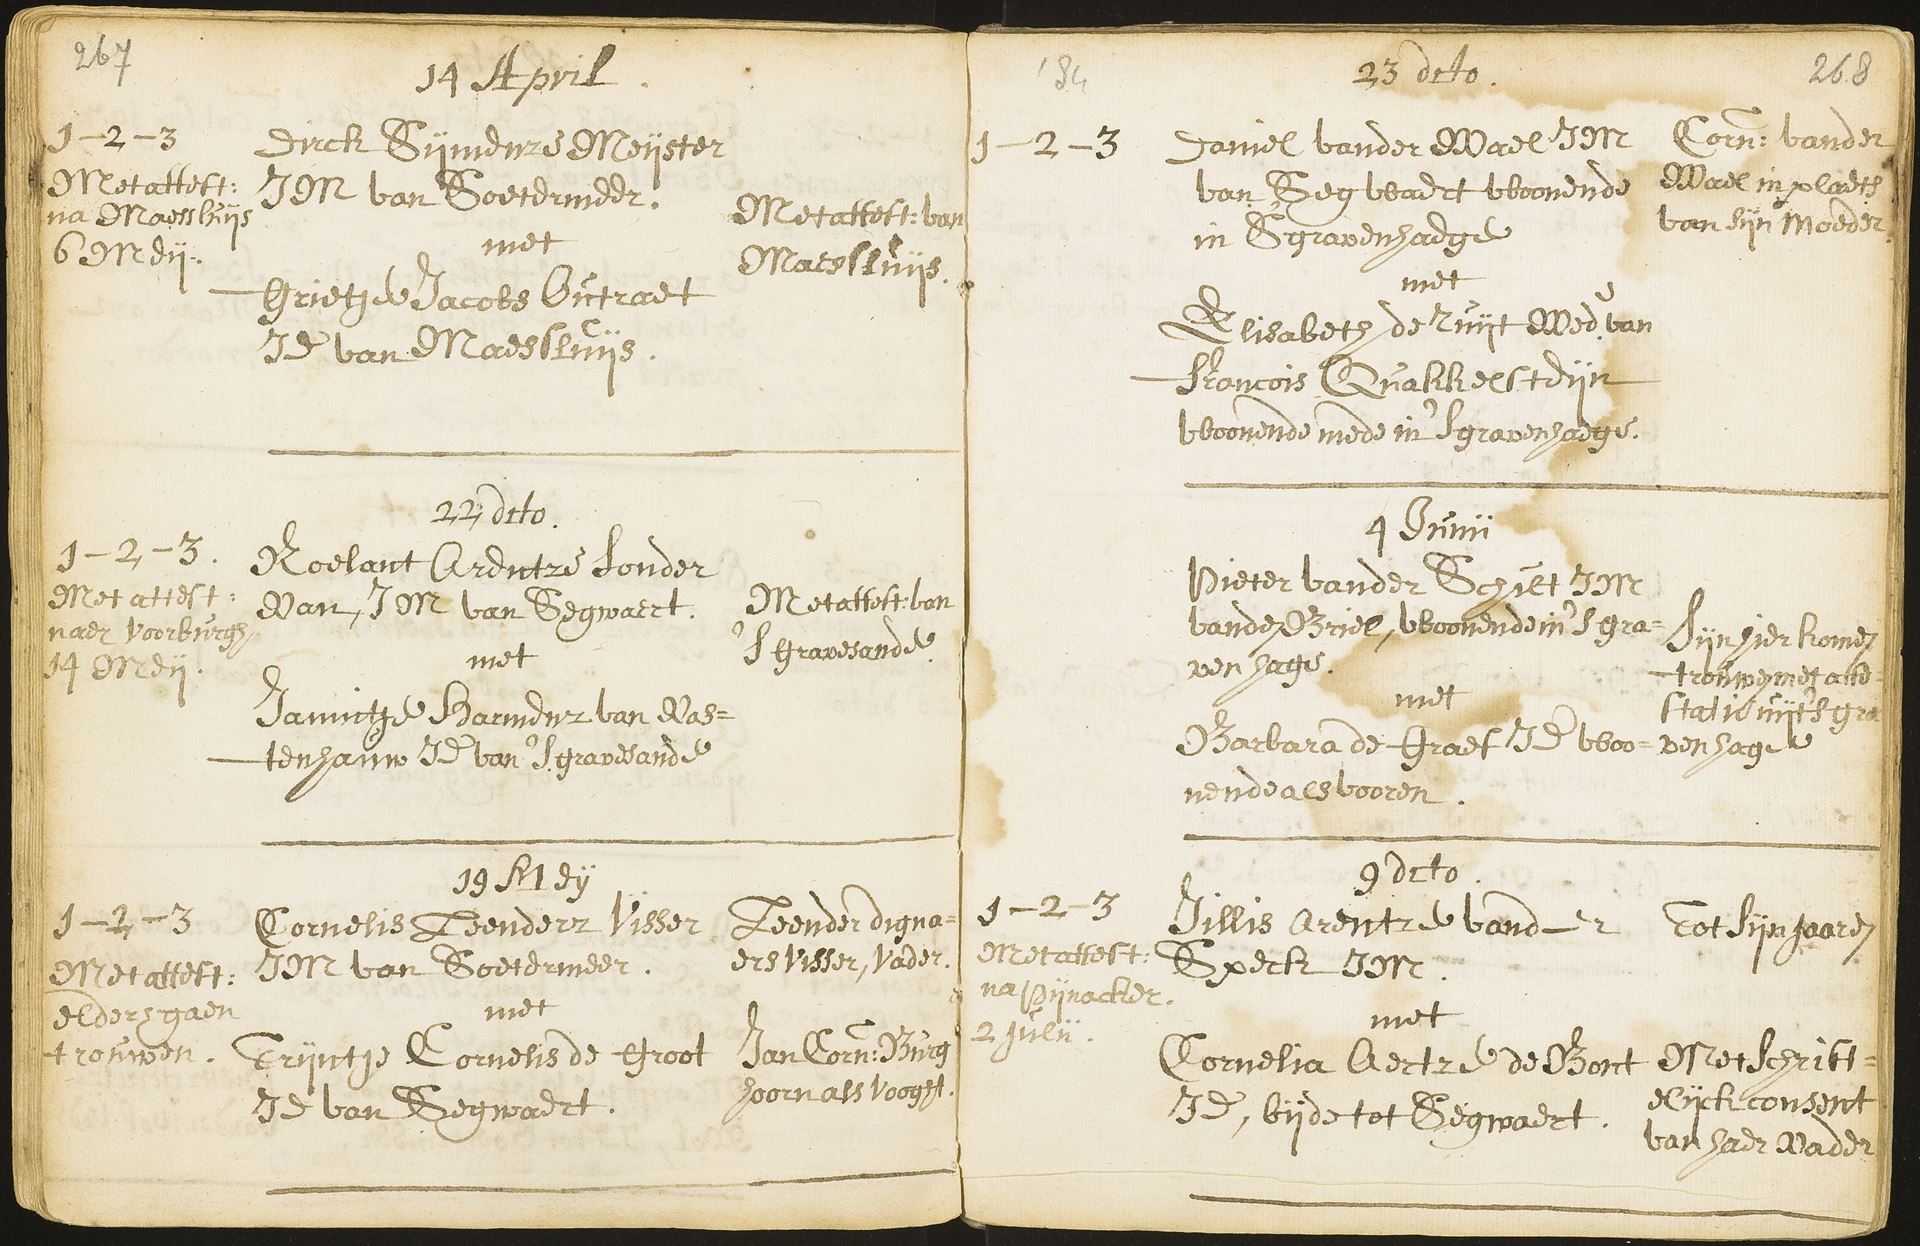 267
14 April.
1-2-3
Met attest:
na Maessluijs
6 Meij.
Dirck Sijmensz Meijster
JM van Soetermeer.
met
Grietje Jacobs Outraet
JD van Maessluijs.
Met attest: van
Maessluijs.
22 dito.
1-2-3.
Met attest:
naer Voorburgh
14 Meij.
Roelant Arentze Sonder
Van, JM van Segwaert.
met
Jannetje Harmensz van Was=
tenhauw JD van 'Sgravesande
Met attest: van
'S Gravesande.
19 Meij
1-2-3
Met attest:
elders gaen
trouwen.
Cornelis Leenderz Visser
JM van Soetermeer.
met
Trijntje Cornelis de Groot
JD van Segwaert.
Leender digna=
ers Visser, Vader.
Jan Corn: Burg
hoorn als Voogt.
184
23 dito.
268
1-2-3
Daniel vander Wael JM
van Segwaert woonende
in Sgravenhaege
met
Elisabeth de Ruijt Wed. van
Francois Quakkelsteijn
woonende mede in 'Sgravenhaege.
Corn: vander
Wael in plaets
van sijn Moeder.
4 Junii
Pieter vander Schilt JM
vande Briel, woonende in 'Sgra=
venhage.
met
Barbara de Graef JD woo=
nende als vooren.
Sijn hier komen
trouwen met atte=
statie uijt 'Sgra
venhage
9 dito.
1-2-3
Met attest:
na Pijnacker.
2 Julii.
Jillis Arentze vander
Speck JM.
met
Cornelia Aertze de Bont
JD, bijde tot Segwaert.
Tot sijn jaaren
Met Schrift=
elijck consent
van haer Vader